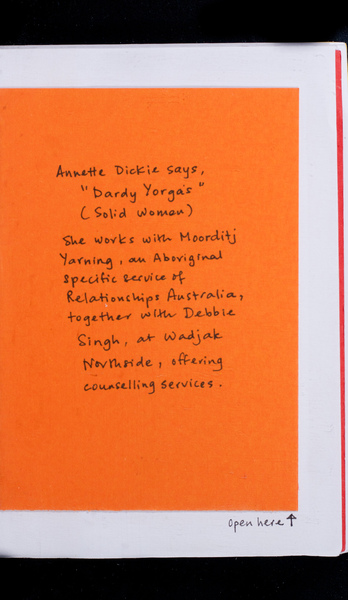 Annette Dickie says,
"Dardy Yorgas"
(Solid Women)
She works with Moorditj
Yarning, an Aboriginal
specific service of
Relationships Australia,
together with Debbie
Singh, at Wadjak
Northside, offering
counselling services.
open here ↑